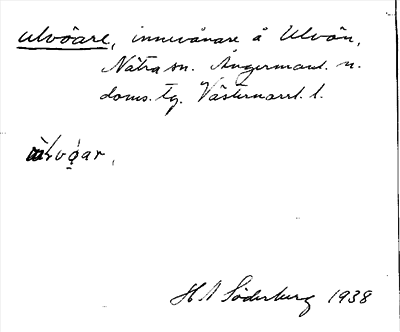 ulvöare, innevånare å Ulvön,
Nätra sn. Ångermanl. n.
doms. tg. Västernorrl. l.
H N Söderberg 1938